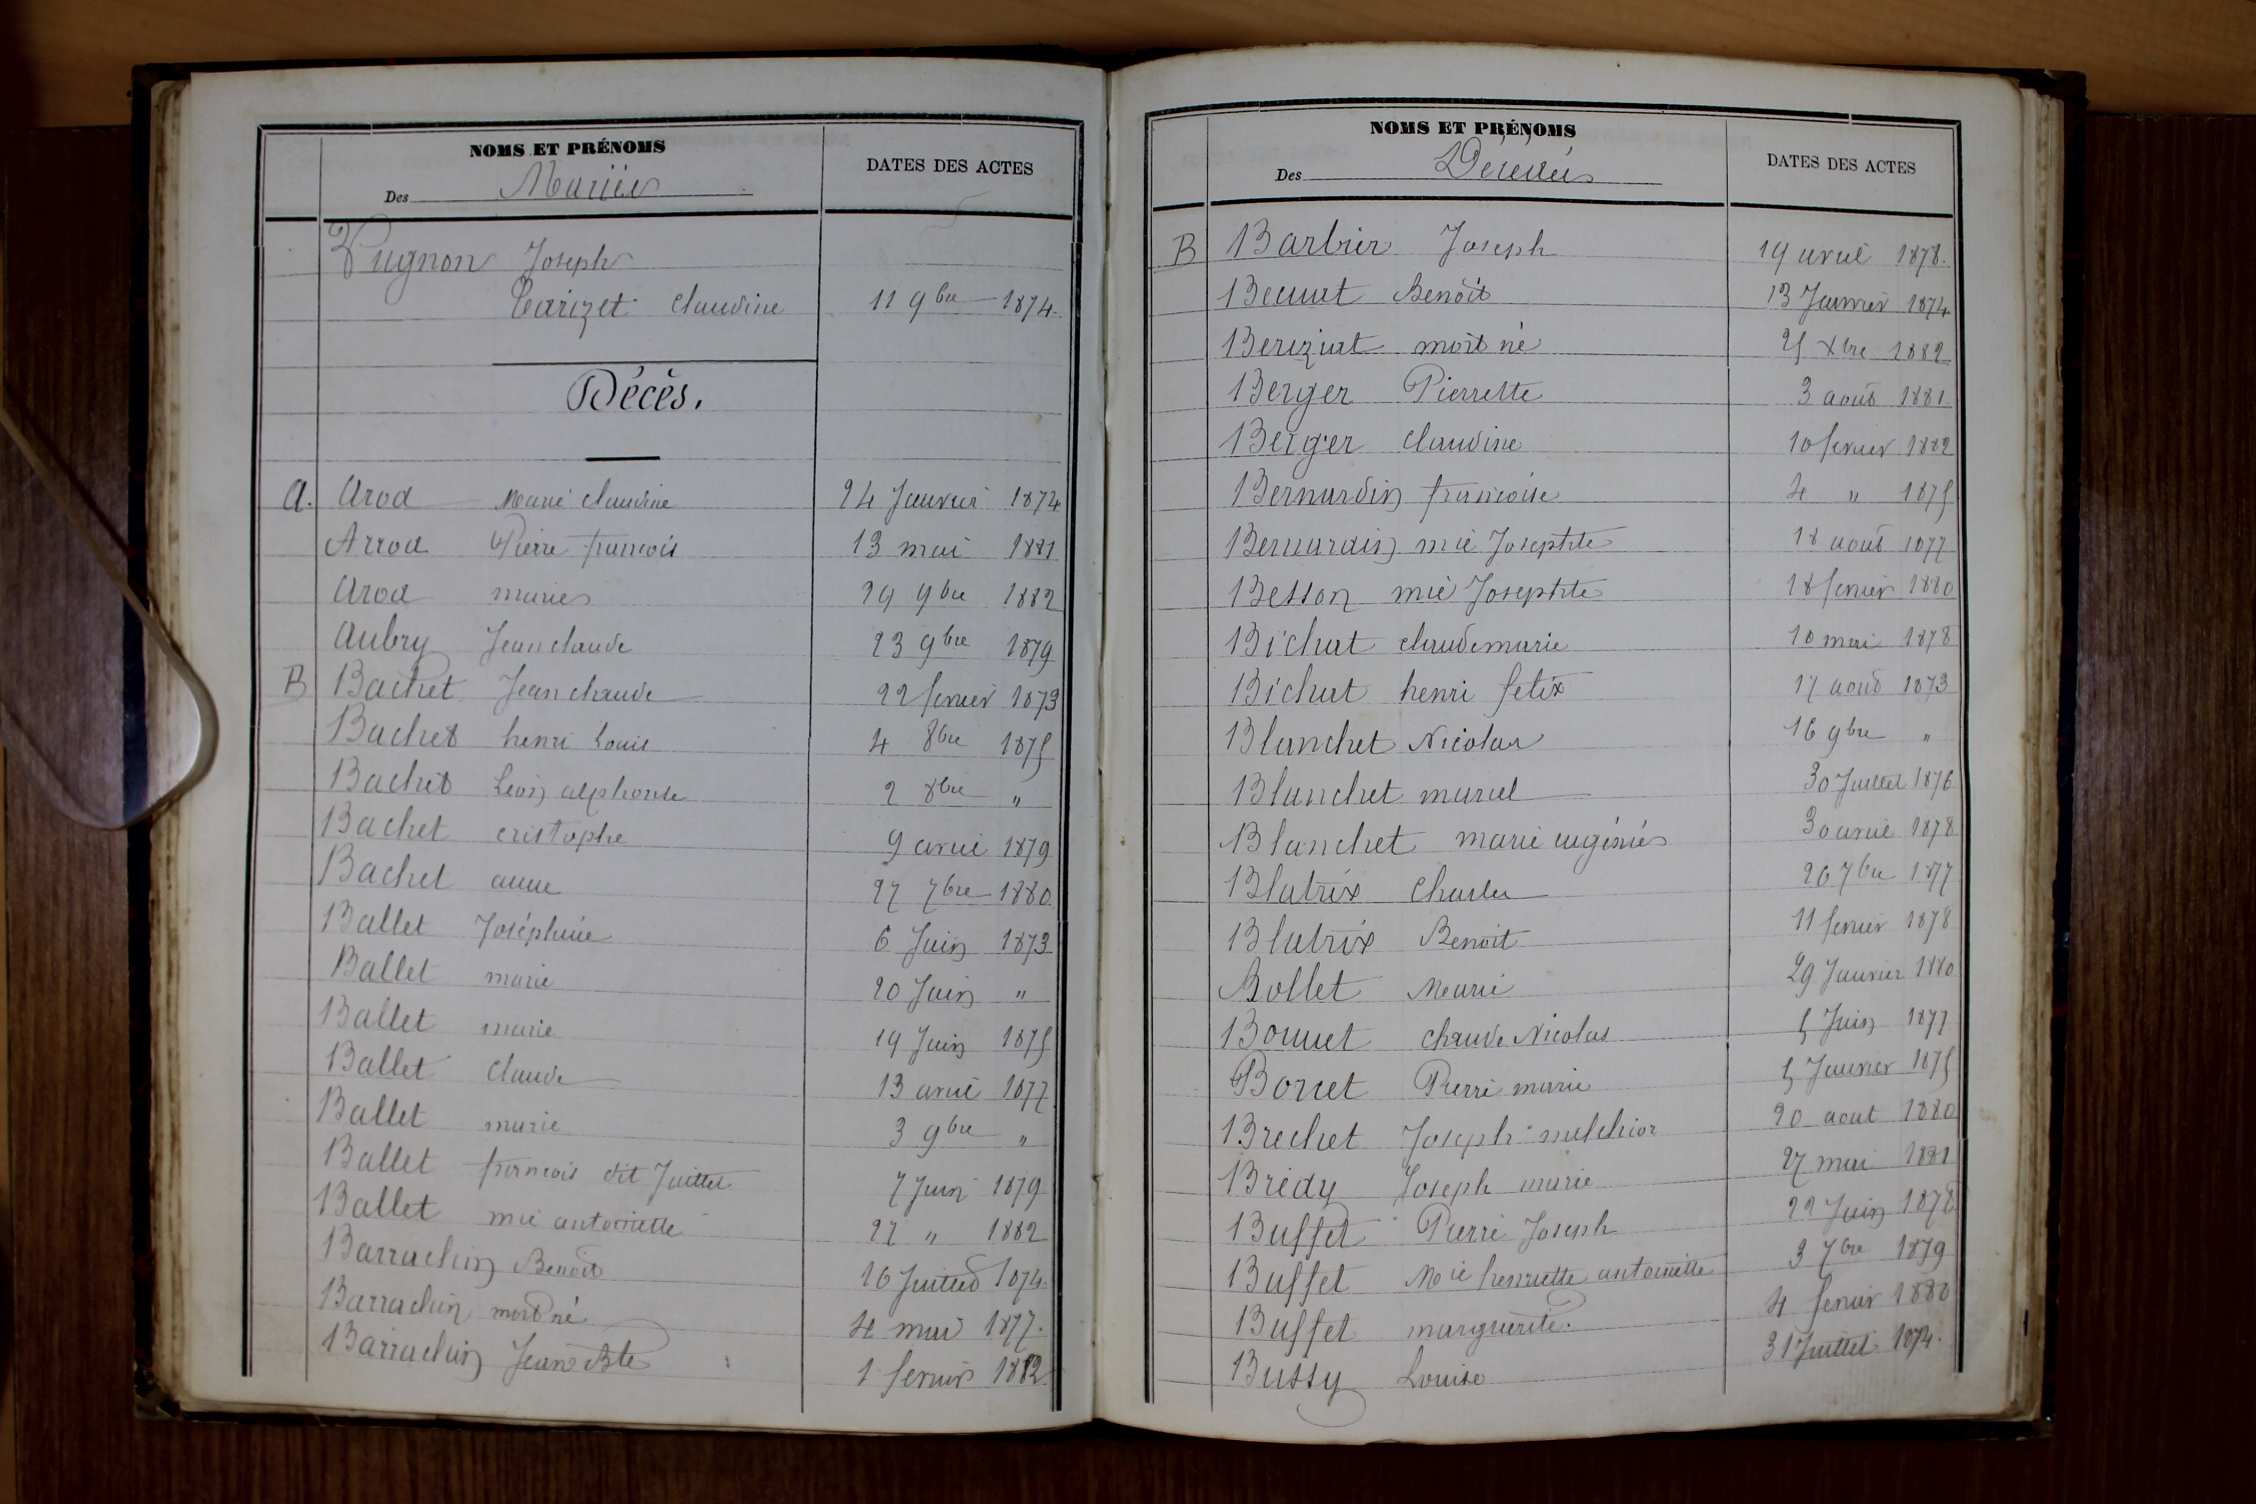 NOMS ET PRÉNOMS
DATES DES ACTES
Des Mariées
Vugnon Joseph
Carizet Claudine 11 9bre 1874
Décès.
A. Arod Marie Claudine 24 Janvier 1874
Arrod Pierre françois 13 mai 1881
Arod marie 29 9bre 1882
Aubry Jean claude 23 9bre 1879
B Bachet Jean claude 22 fevrier 1873
Bachet henri Louis 4 8bre 1875
Bachet Léon alphonse 2 xbre "
Bachet cristophe 9 avril 1879
Bachet anne 27 7bre 1880
Ballet Joséphine 6 Juin 1873
Ballet marie 20 Juin "
Ballet marie 19 Juin 1875
Ballet Claude 13 avril 1877
Ballet marie 3 9bre "
Ballet françois dit Juillet 7 Juin 1879
Ballet mie antoinette 27 " 1882
Barrachin Benoit 16 Juillet 1874
Barrachin mort né 4 mai 1877.
Barrachin Jean Bte 1 fevrier 1882
NOMS ET PRÉNOMS
DATES DES ACTES
Des Décédés
B Barbier Joseph 19 avril 1878.
Benoît 13 Janvier 1874
Beriziat mort né 25 xbre 1882
Berger Pierrette 3 août 1881
Berger Claudine 10 fevrier 1882
Bernardin françoise 4 " 1875
Bernardin mie Josephte 18 août 1877
Besson mie Josephte 18 fevrier 1880
Bichat claude marie 10 mai 1878
Bichat henri felix 17 août 1873
Blanchet Nicolas 16 9bre "
Blanchet marcel 30 Juillet 1876
Blanchet marie eugénie 30 avril 1878
Blatrix Charles 20 7bre 1877
Blatrix Benoit 11 fevrier 1878
Bollet Marie 29 Janvier 1880
Bonnet Claude Nicolas 5 Juin 1877
Borret Pierre marie 5 Janvier 1875
Brechet Joseph melchior 20 aout 1880
Brédy Joseph marie 27 mai 1881
Buffet Pierre Joseph 22 Juin 1878
Buffet Mie henriette antoinette 3 7bre 1879
Buffet marguerite. 4 fevrier 1880
Bussy Louise 31 Juillet 1874.